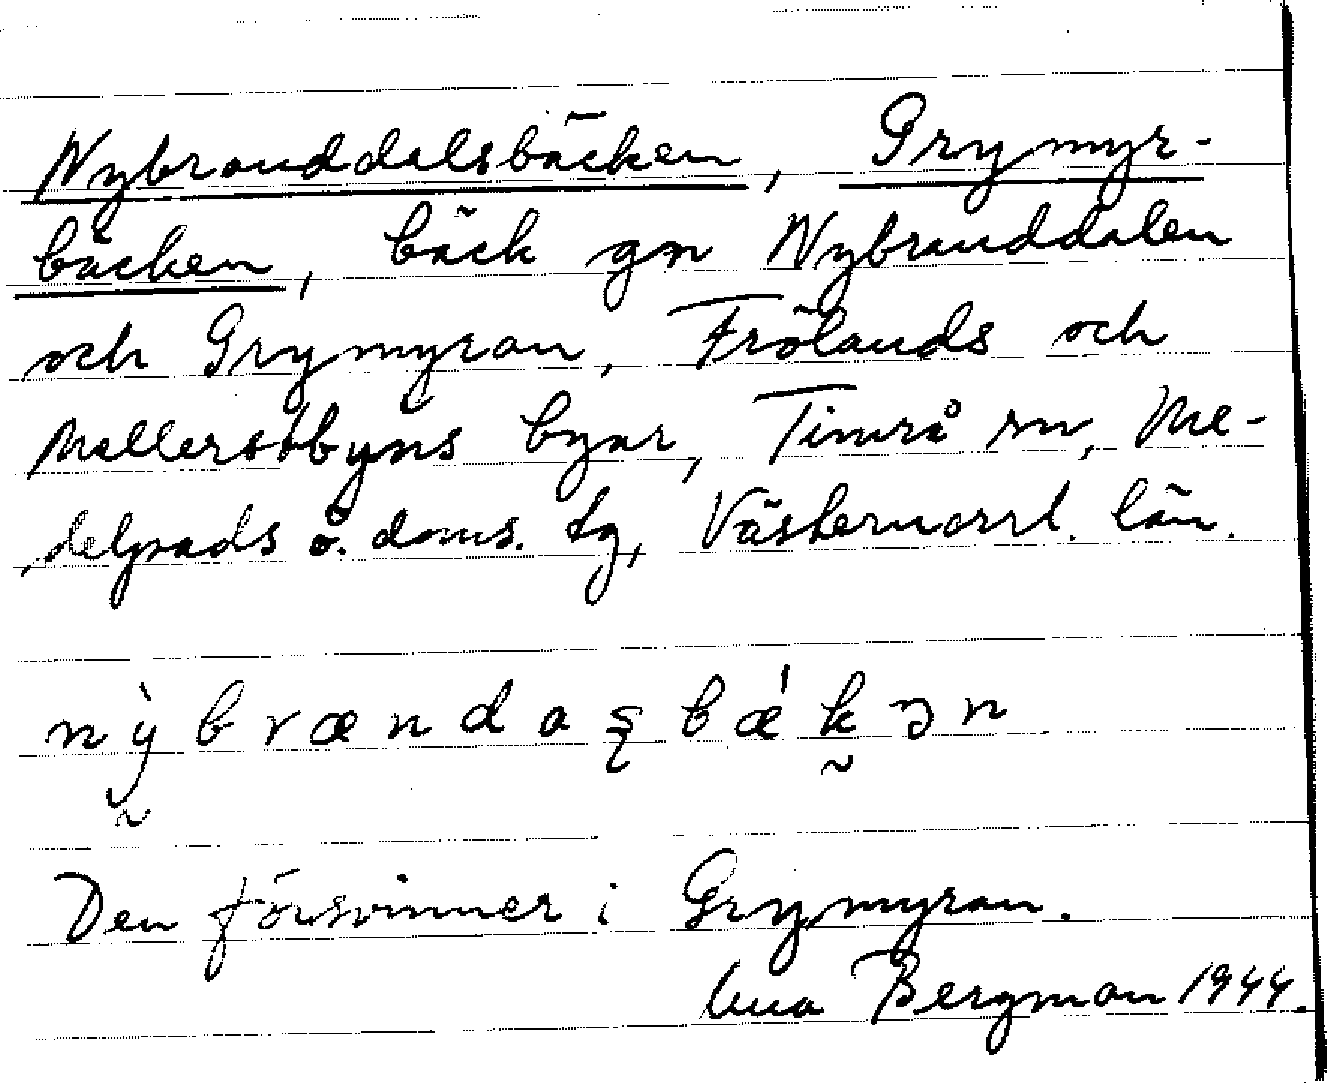 Nybranddalsbäcken, Grymyr-
bäcken, bäck gn Nybranddalen
och Grymyran, Frölands och
Mellersbbyns byar, Timrå sn, Me-
delpads ö. doms. tg, Västernorrl. län.
nỳbrændaʂbǽkən
Den försvinner i Grymyran.
Bergman 1944.